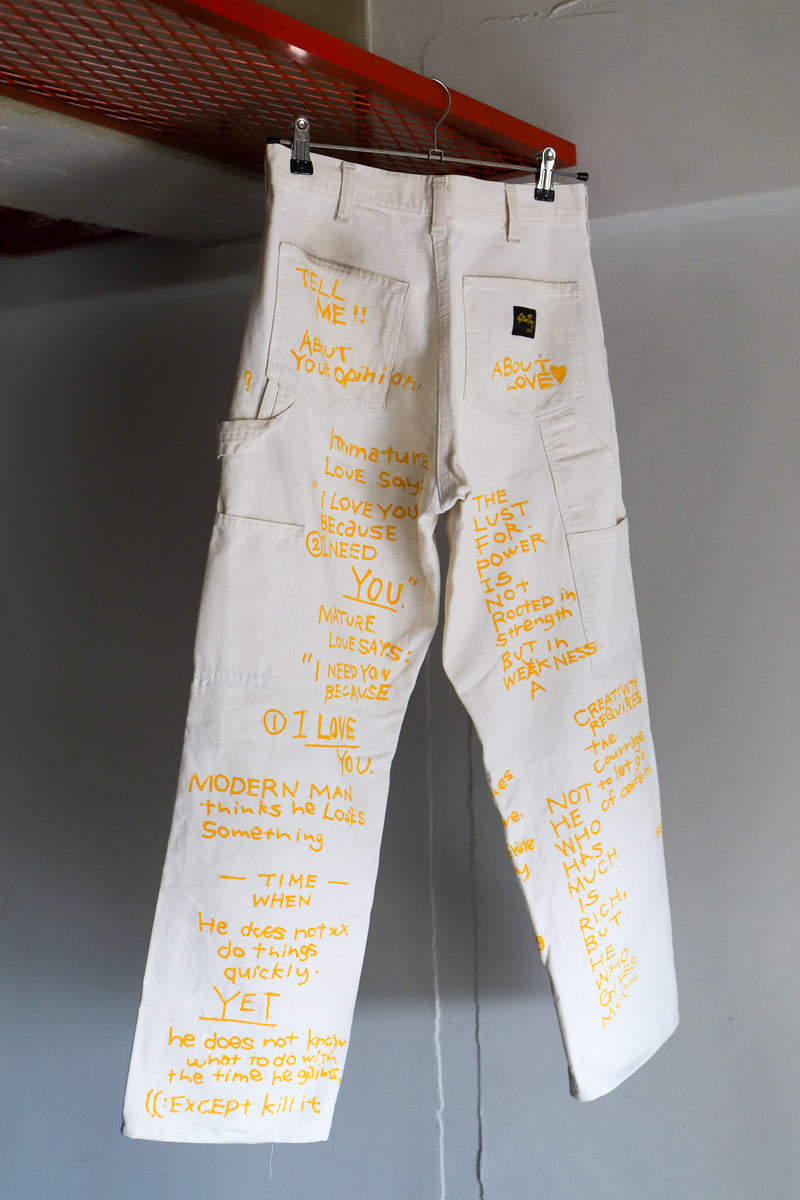 TELL
ME!!
ABOUT
YOUR Opinion,
?
Immature
LOVE says
"I LOVE YOU
BECAUSE
② I NEED
YOU."
MATURE
LOVE SAYS:
"I NEED YOU
BECAUSE
① I LOVE
YOU.
MODERN MAN
thinks he LOSES
Something
— TIME —
WHEN
He does not xx
do things
quickly.
YET
he does not know
what to do with
the time he gains,
((:EXCEPt kill it
ABOUT
LOVE♥
THE
LUST
FOR
POWER
IS
NOt
ROOTED in
strength
BUT in
WEAKNESS.
A
CREATIVITY
REQUIRES
the
courrage
to let go
of certain.
NOT
HE
WHO
HAS
MUCH
IS
RICH,
BUT
HE
WHO
GIVES
MUCH.